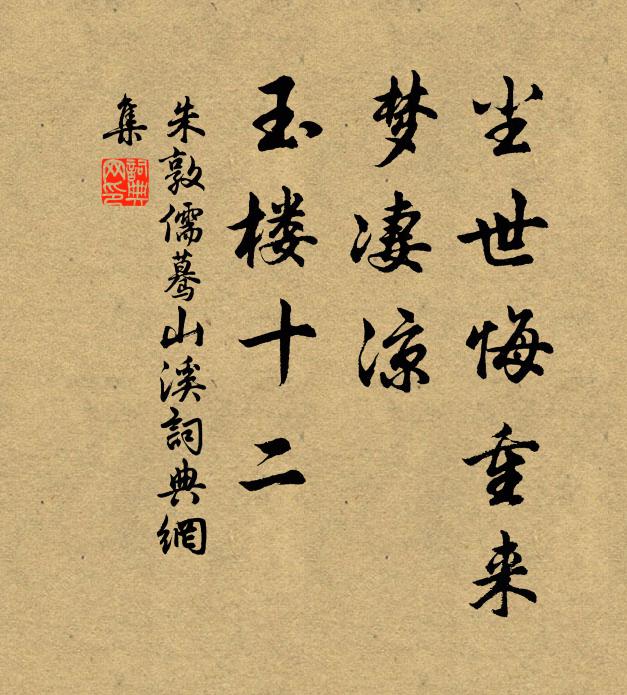 尘世悔重来
梦凄凉
玉楼十二
朱敦儒蓦山溪詞典網
集
詞典
网印